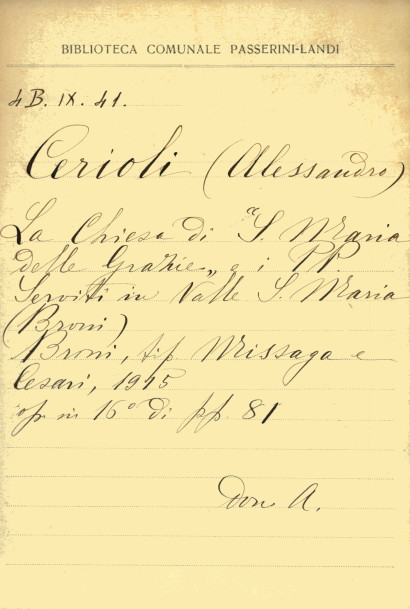 BIBLIOTECA COMUNALE PASSERINI-LANDI
4B. IX. 41.
Cerioli (Alessandro)
La Chiesa di "S. Maria
delle Grazie„ e i PP.
Serviti in Valle S. Maria
(Broni)
Broni, tip. Missaga e
Cesari, 1915
op in 16° di pp. 81
Don A.